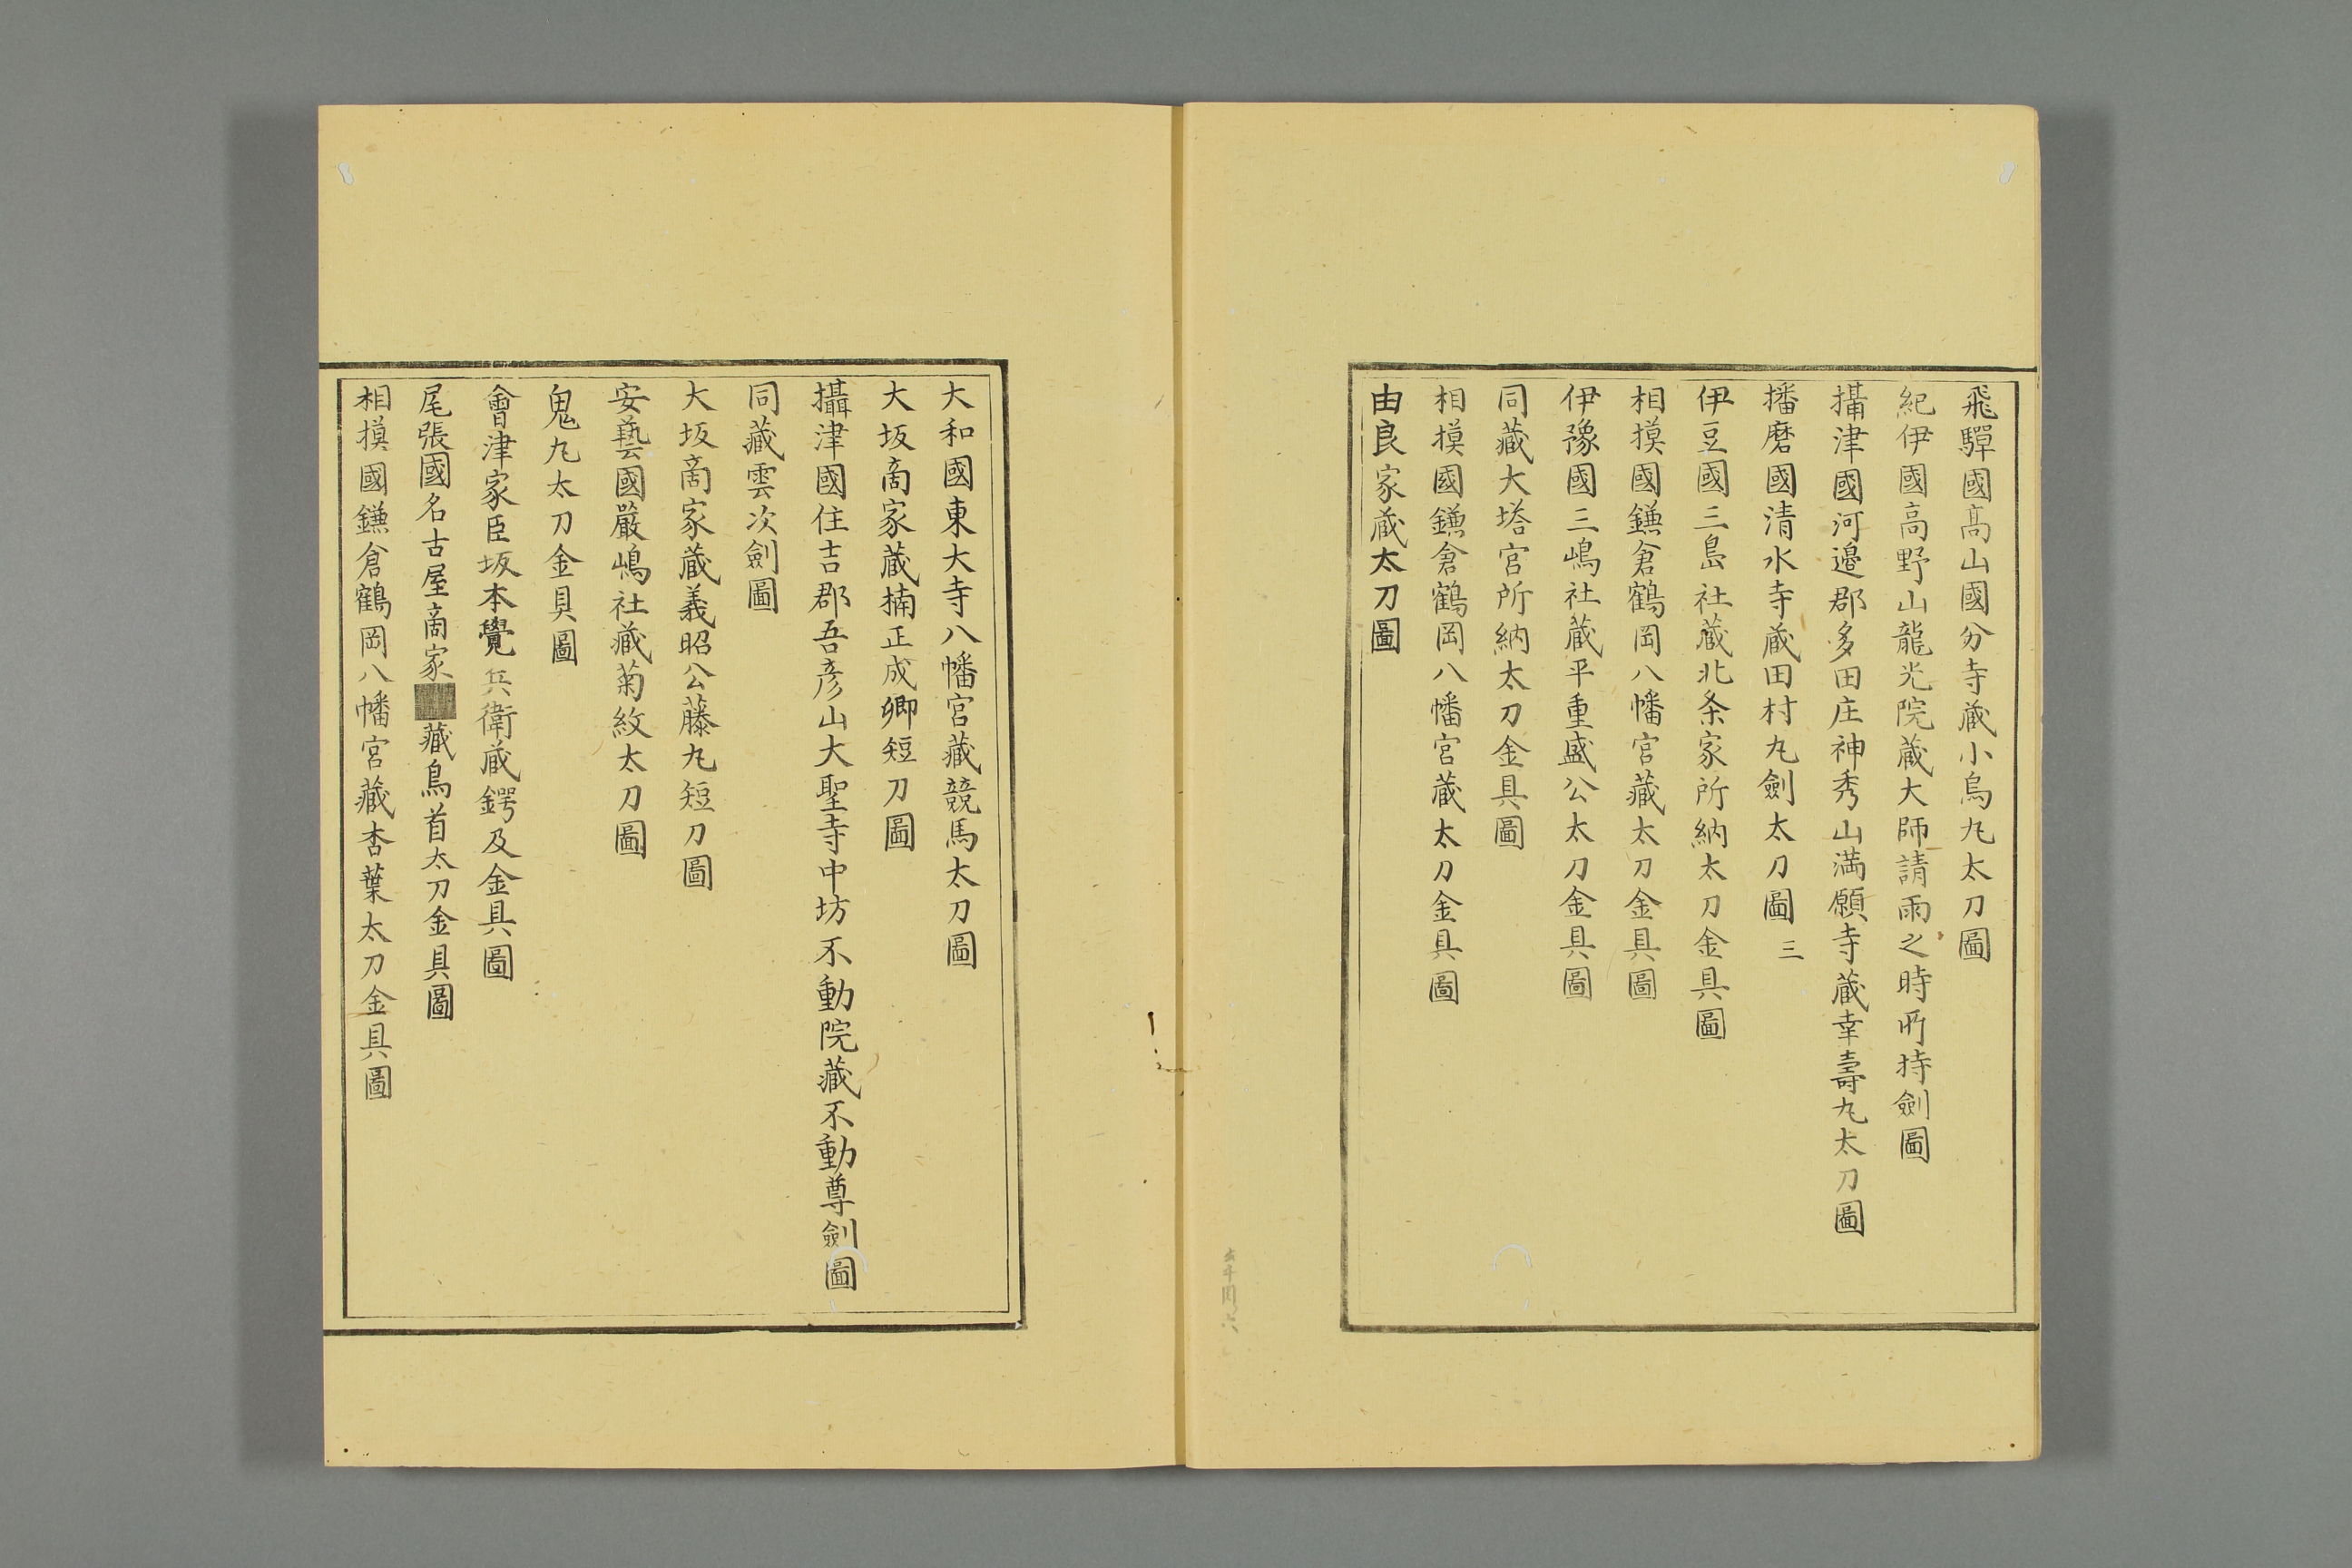 飛驒國髙山國分寺蔵小烏丸太刀圖
紀伊國高野山龍光院蔵大師請雨之時所持劍圖
攝津國河邉郡多田庄神秀山満願寺蔵幸壽丸太刀圖
播磨國清水寺蔵田村丸劍太刀圖 三
伊豆國三島社蔵北条家所納太刀金具圖
相摸國鎌倉鶴岡八幡宮藏太刀金具圖
伊豫國三嶋社蔵平重盛公太刀金具圖
同藏大塔宮所納太刀金具圖
相摸國鎌倉鶴岡八幡宮蔵太刀金具圖
由良家蔵太刀圖
大和國東大寺八幡宮藏競馬太刀圖
大坂啇家蔵楠正成卿短刀圖
攝津國住吉郡吾彦山大聖寺中坊不動院藏不動尊劍圖
同藏雲次劍圖
大坂啇家蔵義昭公藤丸短刀圖
安藝國嚴嶋社藏菊紋太刀圖
鬼丸太刀金具圖
會津家臣坂本覺兵衛蔵鍔及金具圖
尾張國名古屋啇家藏鳥首太刀金具圖
相摸國鎌倉鶴岡八幡宮藏杏葉太刀金具圖